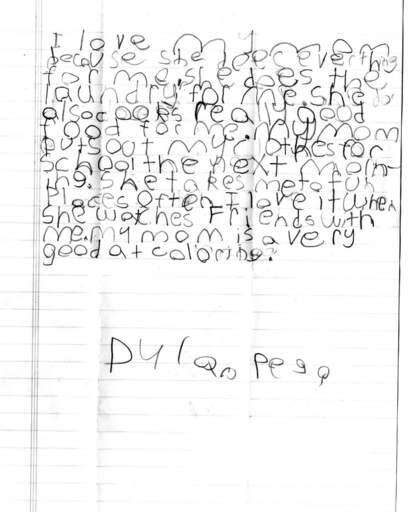 I love my mom
because she does everything
for me. she does the
laundry for me. she
also cooks really good
food for me. my mom
puts out my clothes for
school the next morn
ing. she takes me to fun
places often. I love it when
she watches Friends with
me. my mom is a very
good at coloring.
Dylan Pega